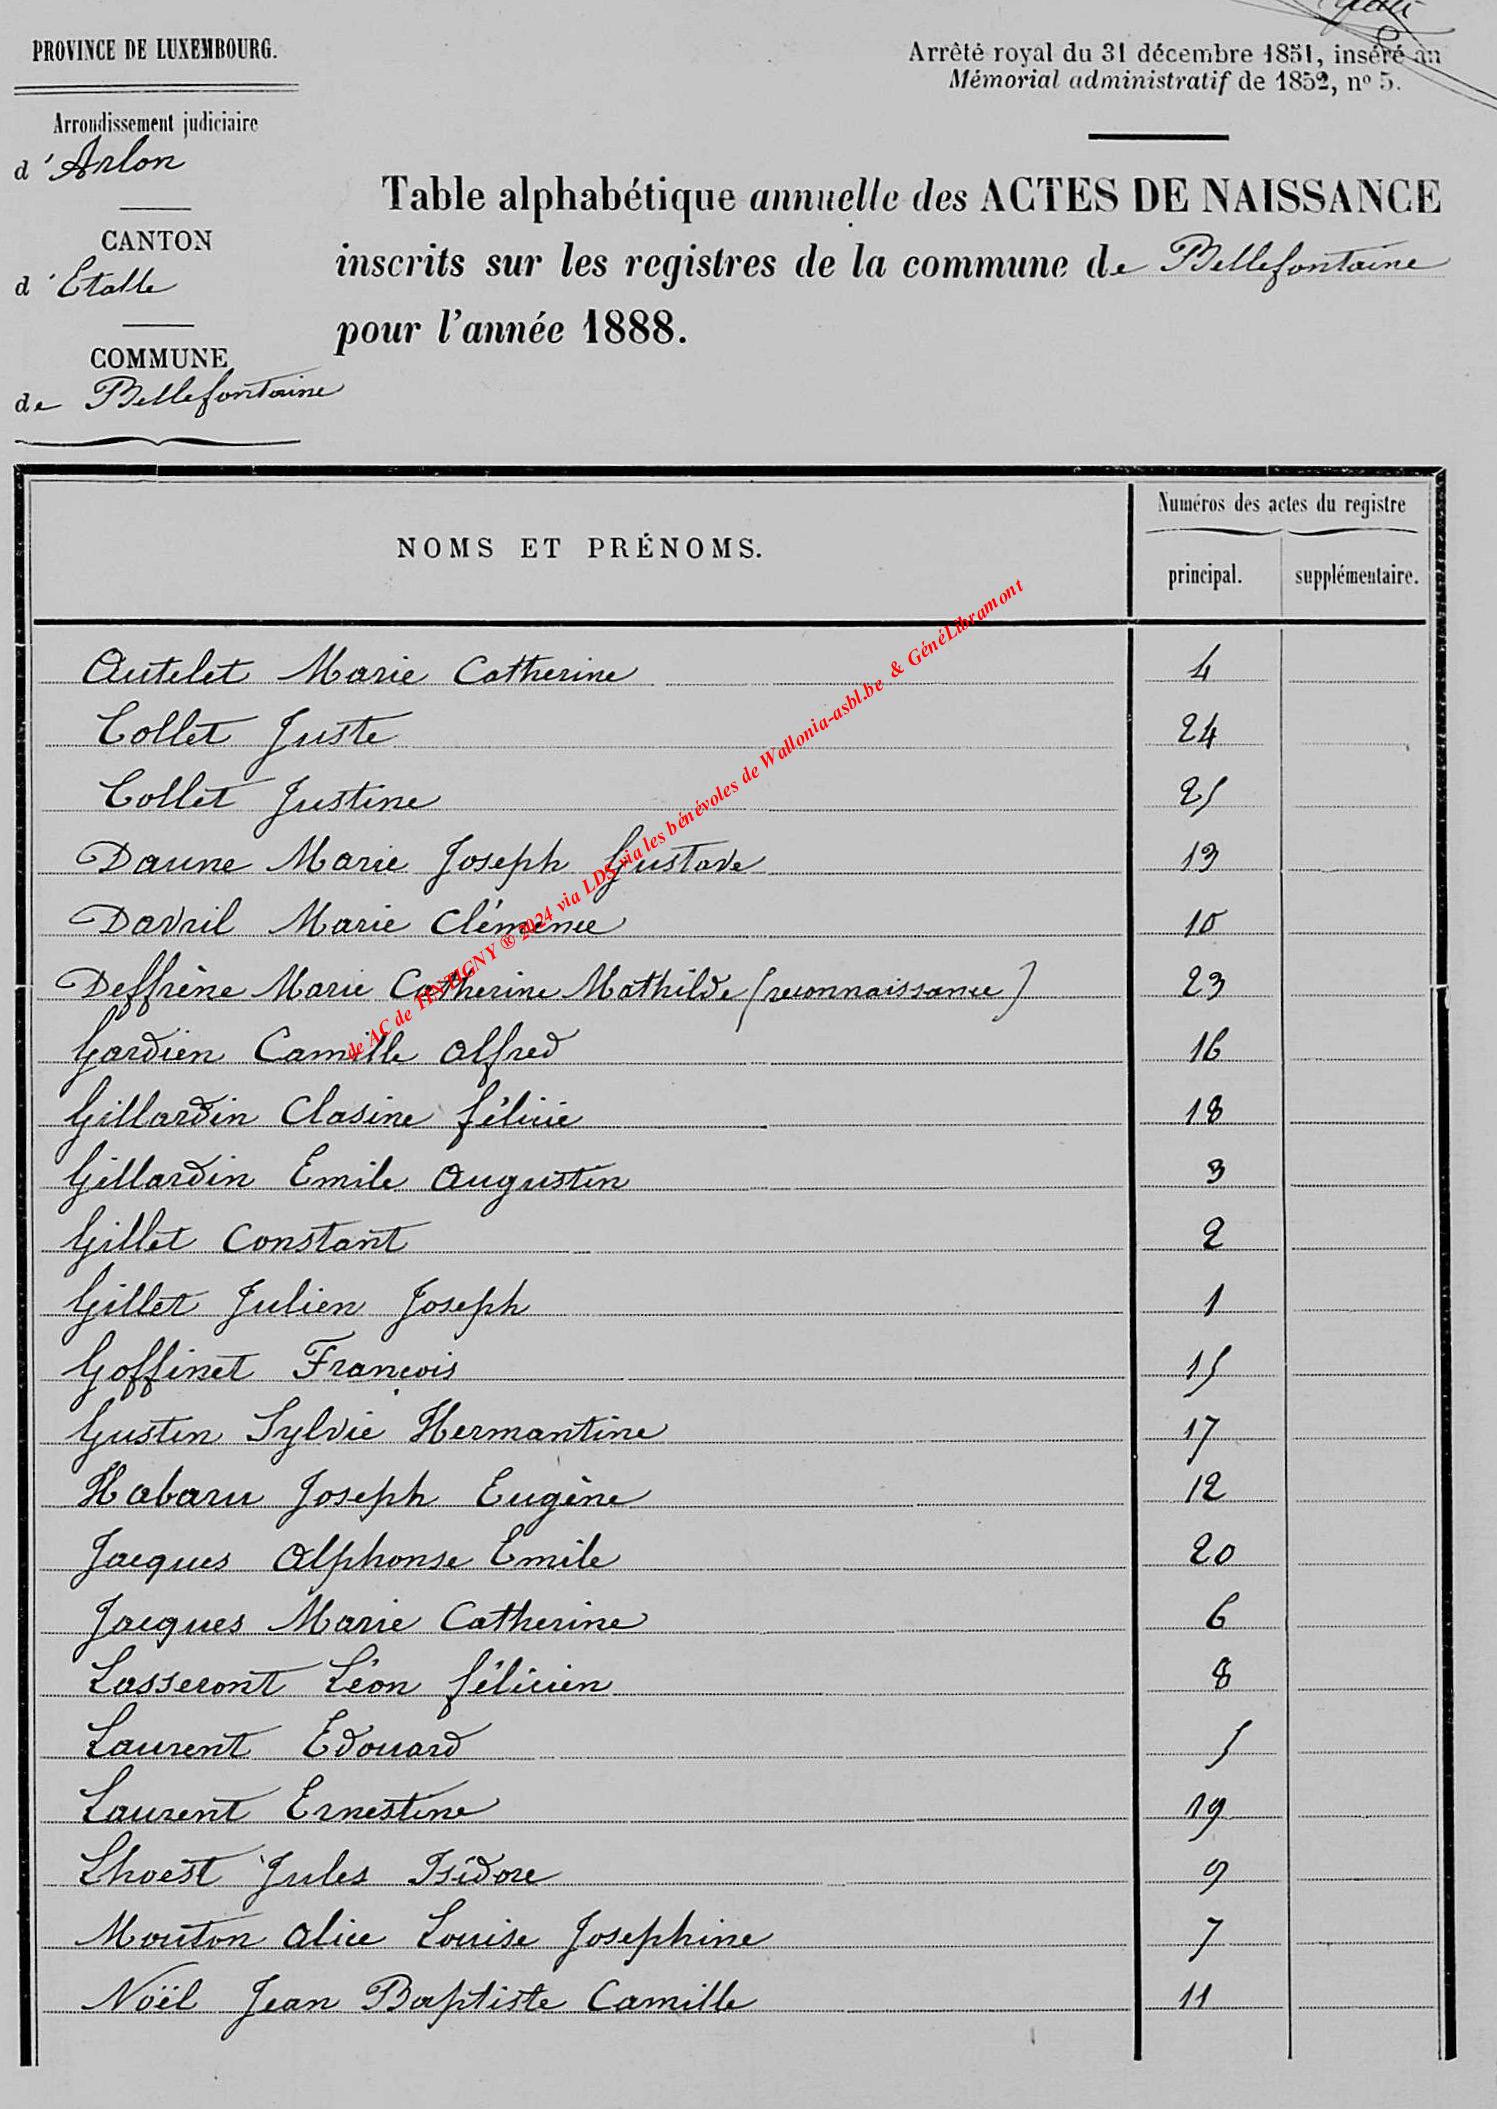 PROVINCE DE LUXEMBOURG.
Arrondissement judiciaire
d'Arlon
CANTON
d'Etalle
COMMUNE
de Bellefontaine
Arrêté royal du 31 décembre 1851, inséré au
Mémorial administratif de 1852, nº 5.
Table alphabétique annuelle des ACTES DE NAISSANCE
inscrits sur les registres de la commune de Bellefontaine
pour l'année 1888.
NOMS ET PRÉNOMS.
Numéros des actes du registre
principal. supplémentaire.
Autelet Marie Catherine 4
Collet Juste 24
Collet Justine 25
Daune Marie Joseph Gustave 13
Davril Marie Clémence 10
Deffrène Marie Catherine Mathilde (reconnaissance) 23
Gardien Camille Alfred 16
Gillardin Clasine félicie 18
Gillardin Emile Augustin 3
Gillet Constant 2
Gillet Julien Joseph 1
Goffinet François 15
Gustin Sylvie Hermantine 17
Habaru Joseph Eugène 12
Jacques Alphonse Emile 20
Jacques Marie Catherine 6
Lasseront Léon félicien 8
Laurent Edouard 5
Laurent Ernestine 19
Lhoest Jules Isidore 9
Mouton Alice Louise Josephine 7
Noël Jean Baptiste Camille 11
de AC de TINTIGNY ® 2024 via LDS via les bénévoles de Wallonia-asbl.be & GénéLibramont